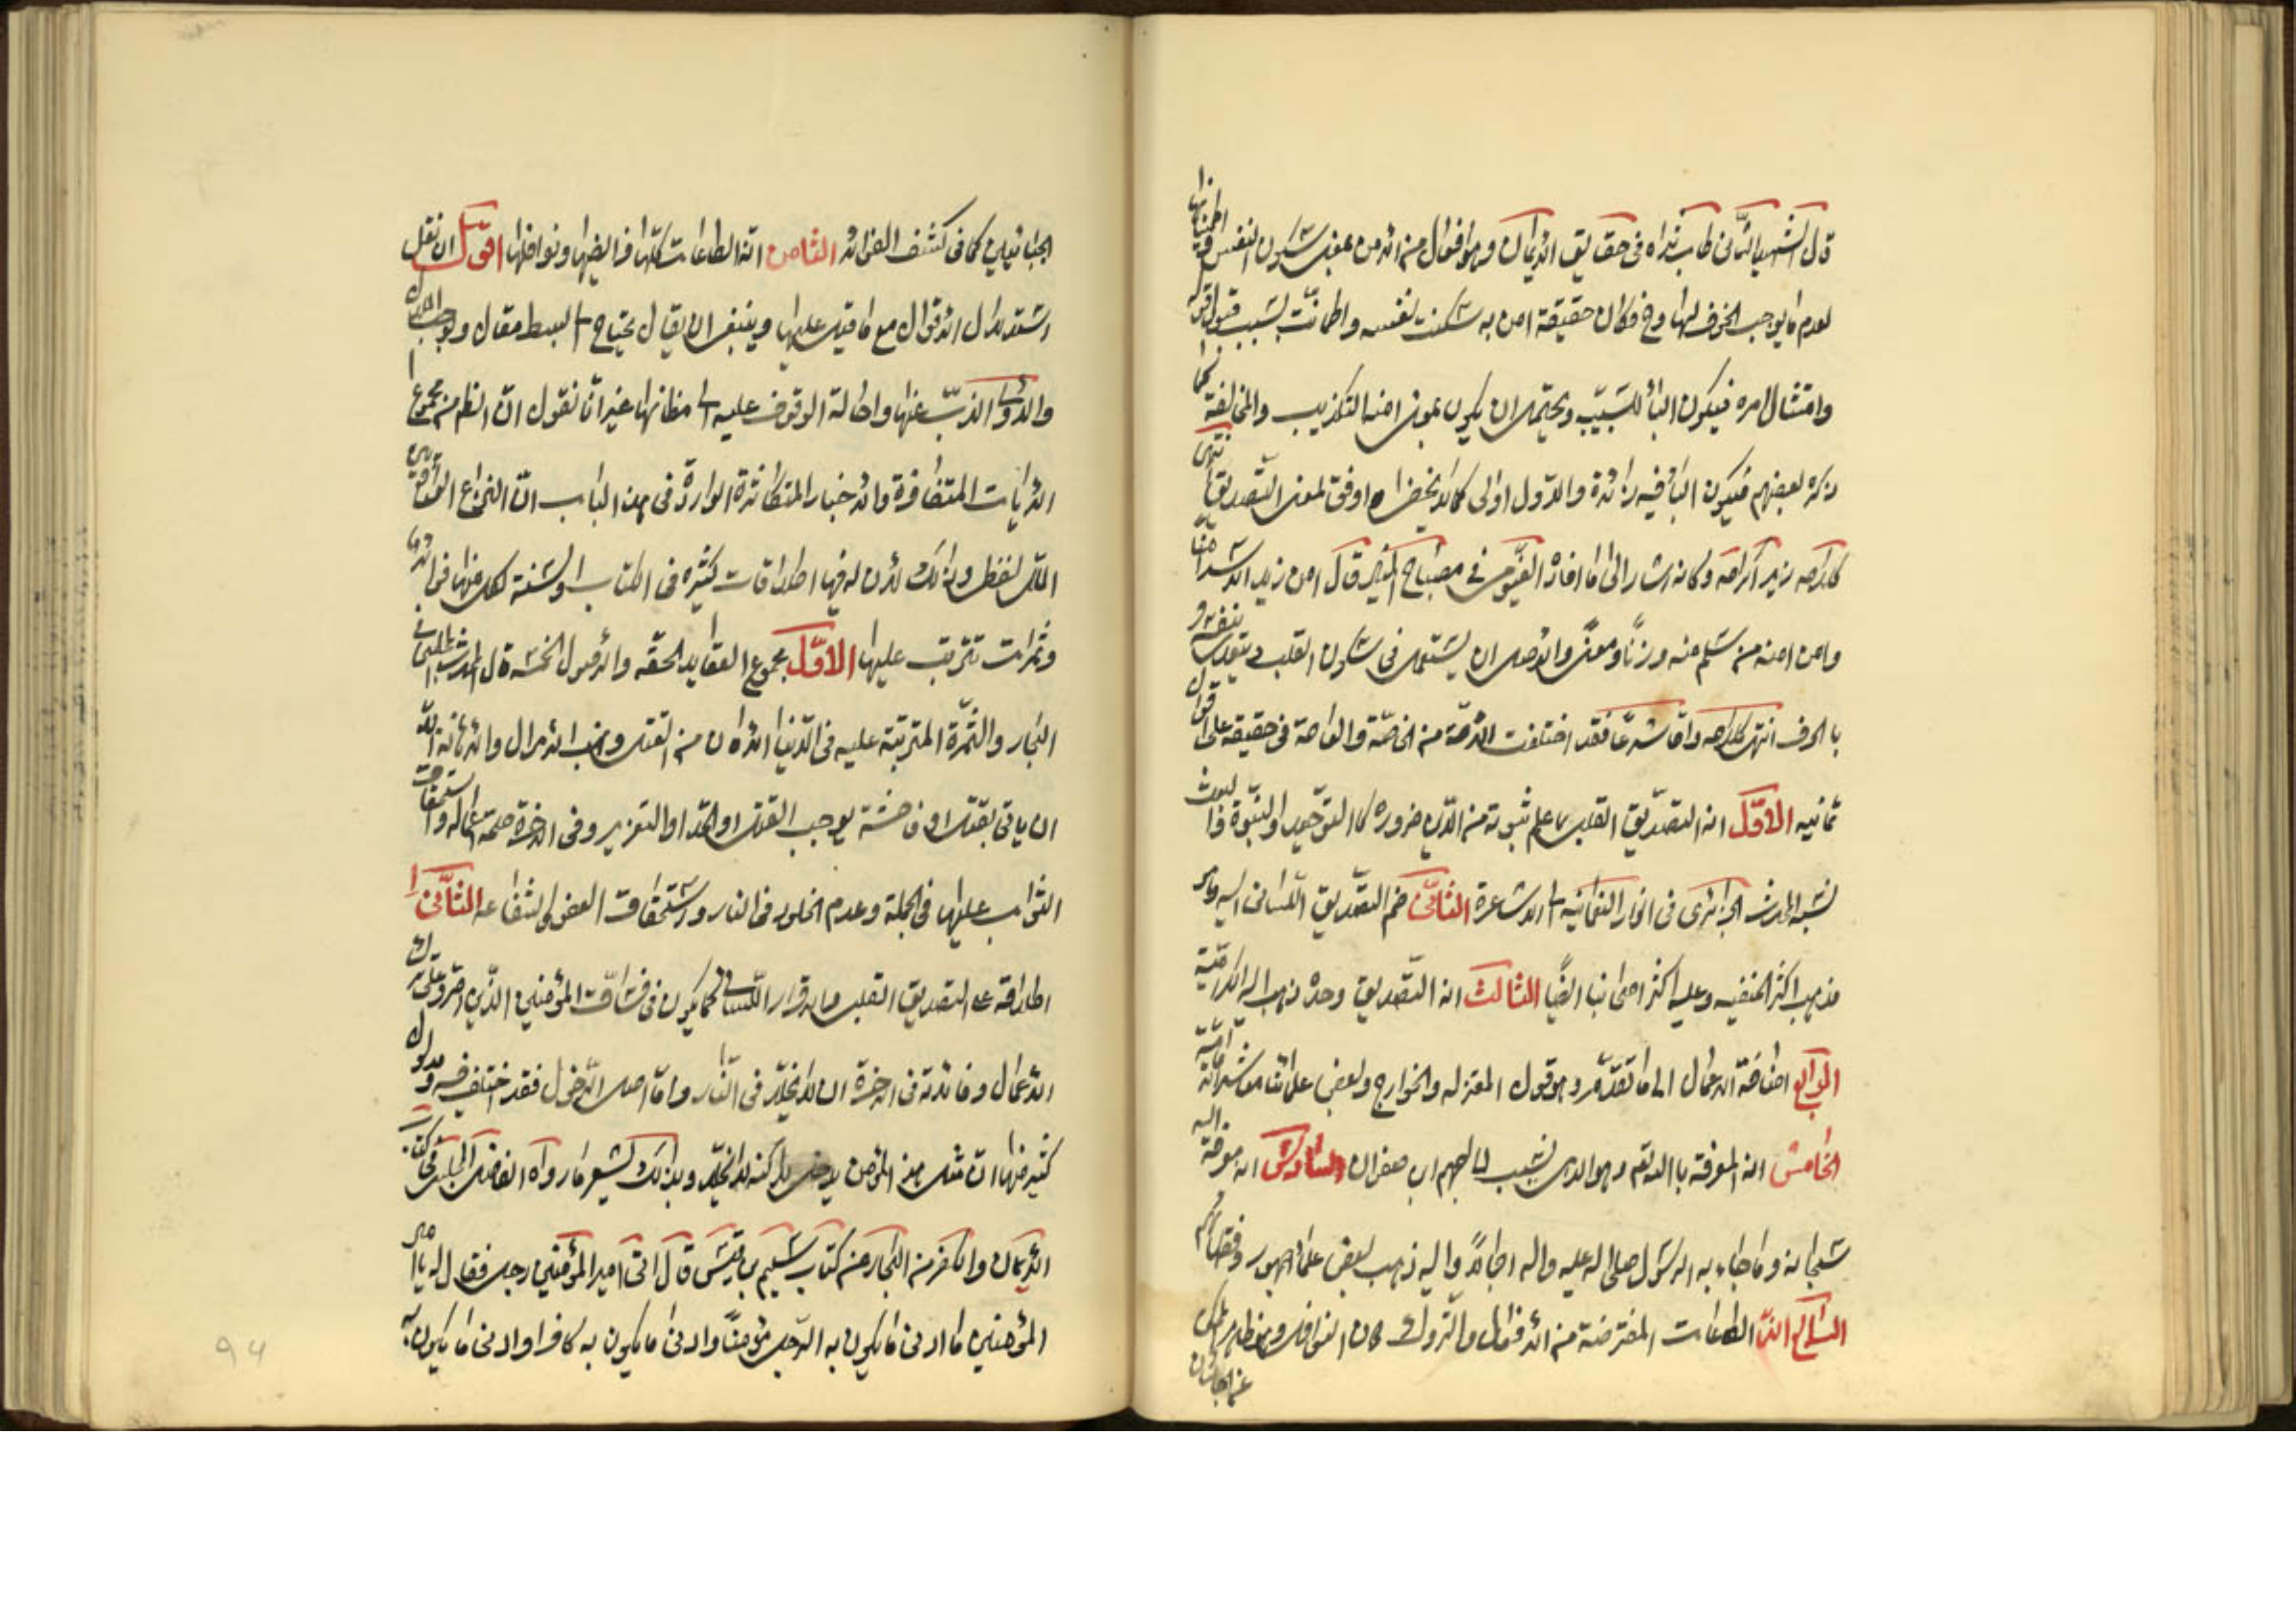 قال الشهيد الثاني طاب ثراه في حقايق الايمان وهو افعال من الامن بمعنى سكون النفس و اطمئنانها
لعدم ما يوجب الخوف لها وح فكان حقيقة امن به سكنت نفسه واطمانت بسبب قبول قوله
وامتثال امره فيكون الباء للسببية ويحتمل ان يكون بمعنى امنه التكذيب والمخالفة كما
ذكره بعضهم فيكون الباء فيه زائدة والاول اولى كما لا يخفى اوفق لمعنى التصديق انتهى
كلامه زيد اكرامه وكانه اشار الى ما افاده الفيومي في مصباح المنير قال امن زيد الاسد امنا
وامن امنه من سلم منه وزنا ومعنى والاصل ان يستعمل في سكون القلب يتعدى بنفسه و
بالحرف انتهى كلامه واما شرعا فقد اختلفت الامة من الخاصة والعامة في حقيقته على اقوال
ثمانيه الاول انه التصديق القلبي بما علم ثبوته من الدين ضروره كالتوحيد والنبوة والبعث
نسبه المحدث الجزائرى في انوار النعمانيه الى الاشاعرة الثاني ضم التصديق اللساني اليه وهو
مذهب اكثر الحنفيه وعليه اكثر اصحابنا ايضا الثالث انه التصديق وحده ذهب اليه الكرامية
الرابع اضافة الاعمال الى ما تقدم وهو قول المعتزله والخوارج وبعض علمائنا معاشر الامامية
الخامس انه المعرفة بالله تعم وهو الذي نسب الى جهم ابن صفوان السادس انه معرفة الله
سبحانه وما جاء به الرسول صلى الله عليه واله اجمالا واليه ذهب بعض علماء جمهور وفقهائهم
السابع انه الطاعات المفترضة من الافعال والتروك دون النوافل
عن الجبائيان
الجبائيين كما في كشف الفوائد الثامن انه الطاعات كلها فرايضها ونوافلها اقول ان نقل
استدلال الاقوال مع ما قيل عليها وينبغي ان يقال يحتاج الى بسط مقال ويوجب الملال
والاولى الذب عنها واحالة الوقوف عليه الى مظانها غير انا نقول ان الظم من مجموع
الايات المتضافرة والاخبار المتكاثرة الواردة في هذا الباب ان النزاع الواقع بين
الملل لفظى وذلك لان له فيها اطلاقات كثيره في الكتاب والسنة لكل منها فوائد
وثمرات تترتب عليها الاول مجموع العقايد الحقه والاصول الخمسة قال المحدث المجلسي في
البحار والثمرة المترتبة عليه في الدنيا الامان من القتل ونهب الاموال والاهانة الا
ان ياتي بقتل او فاحشة يوجب القتل او الحد او التعزير وفي الاخرة صحة اعماله واستحقاق
الثواب عليها في الجملة وعدم الخلود في النار واستحقاق العفو والشفاعه الثاني
اطلاقه على التصديق القلبي والاقرار اللساني كما يكون في فساق المؤمنين الذين اصروا على ترك
الاعمال وفائدته في الاخرة ان لا يخلد في النار واما اصل الدخول فقد اختلف فيه ومدلول
كثير منها ان مثل هذا المؤمن يدخل لكنه لا يخلد وبذلك يشعر ما رواه الفاضل المجلسي في كتاب
الايمان والكفر من البحار عن كتاب سليم بن قيس قال اتى امير المؤمنين رجل فقال له يا امير
المؤمنين ما ادنى ما يكون به الرجل مؤمنا وادنى ما يكون به كافرا وادنى ما يكون به
94